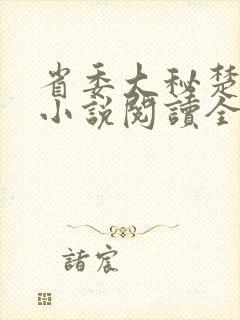 省委大秘楚
小说閱讀全
諸宸